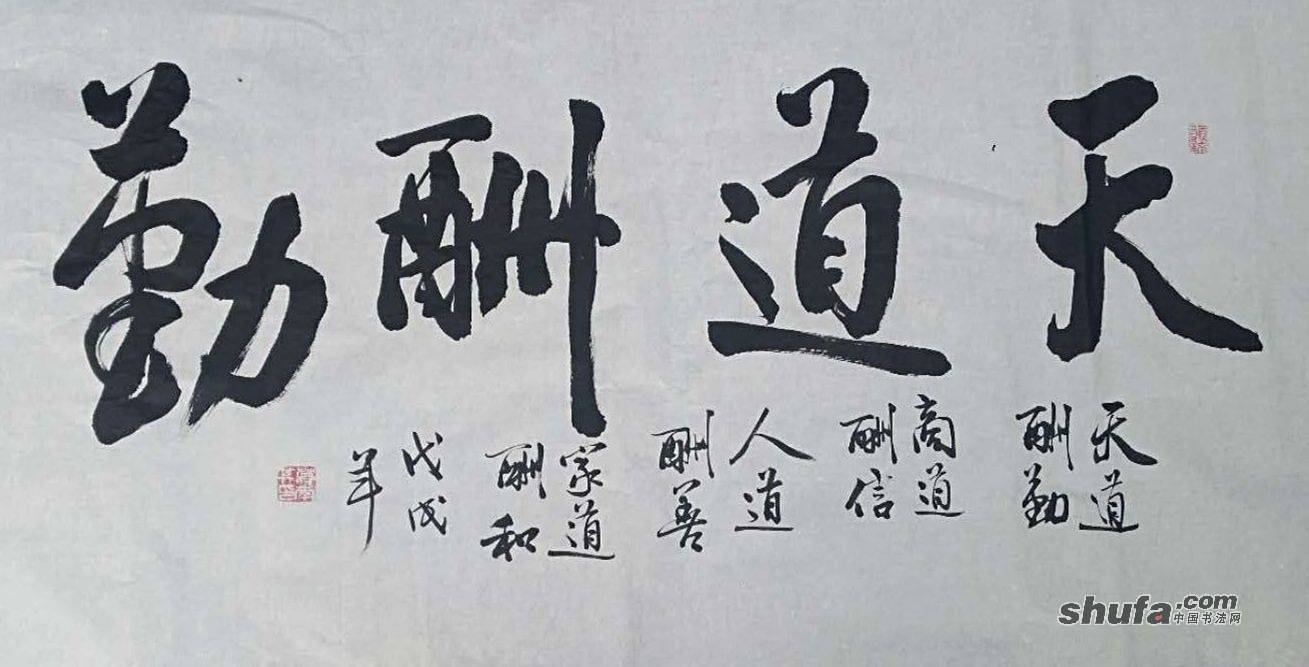 天道酬勤
天道
酬勤
商道
酬信
人道
酬善
家道
酬和
戊戌
年
shufa.com
中国书法网